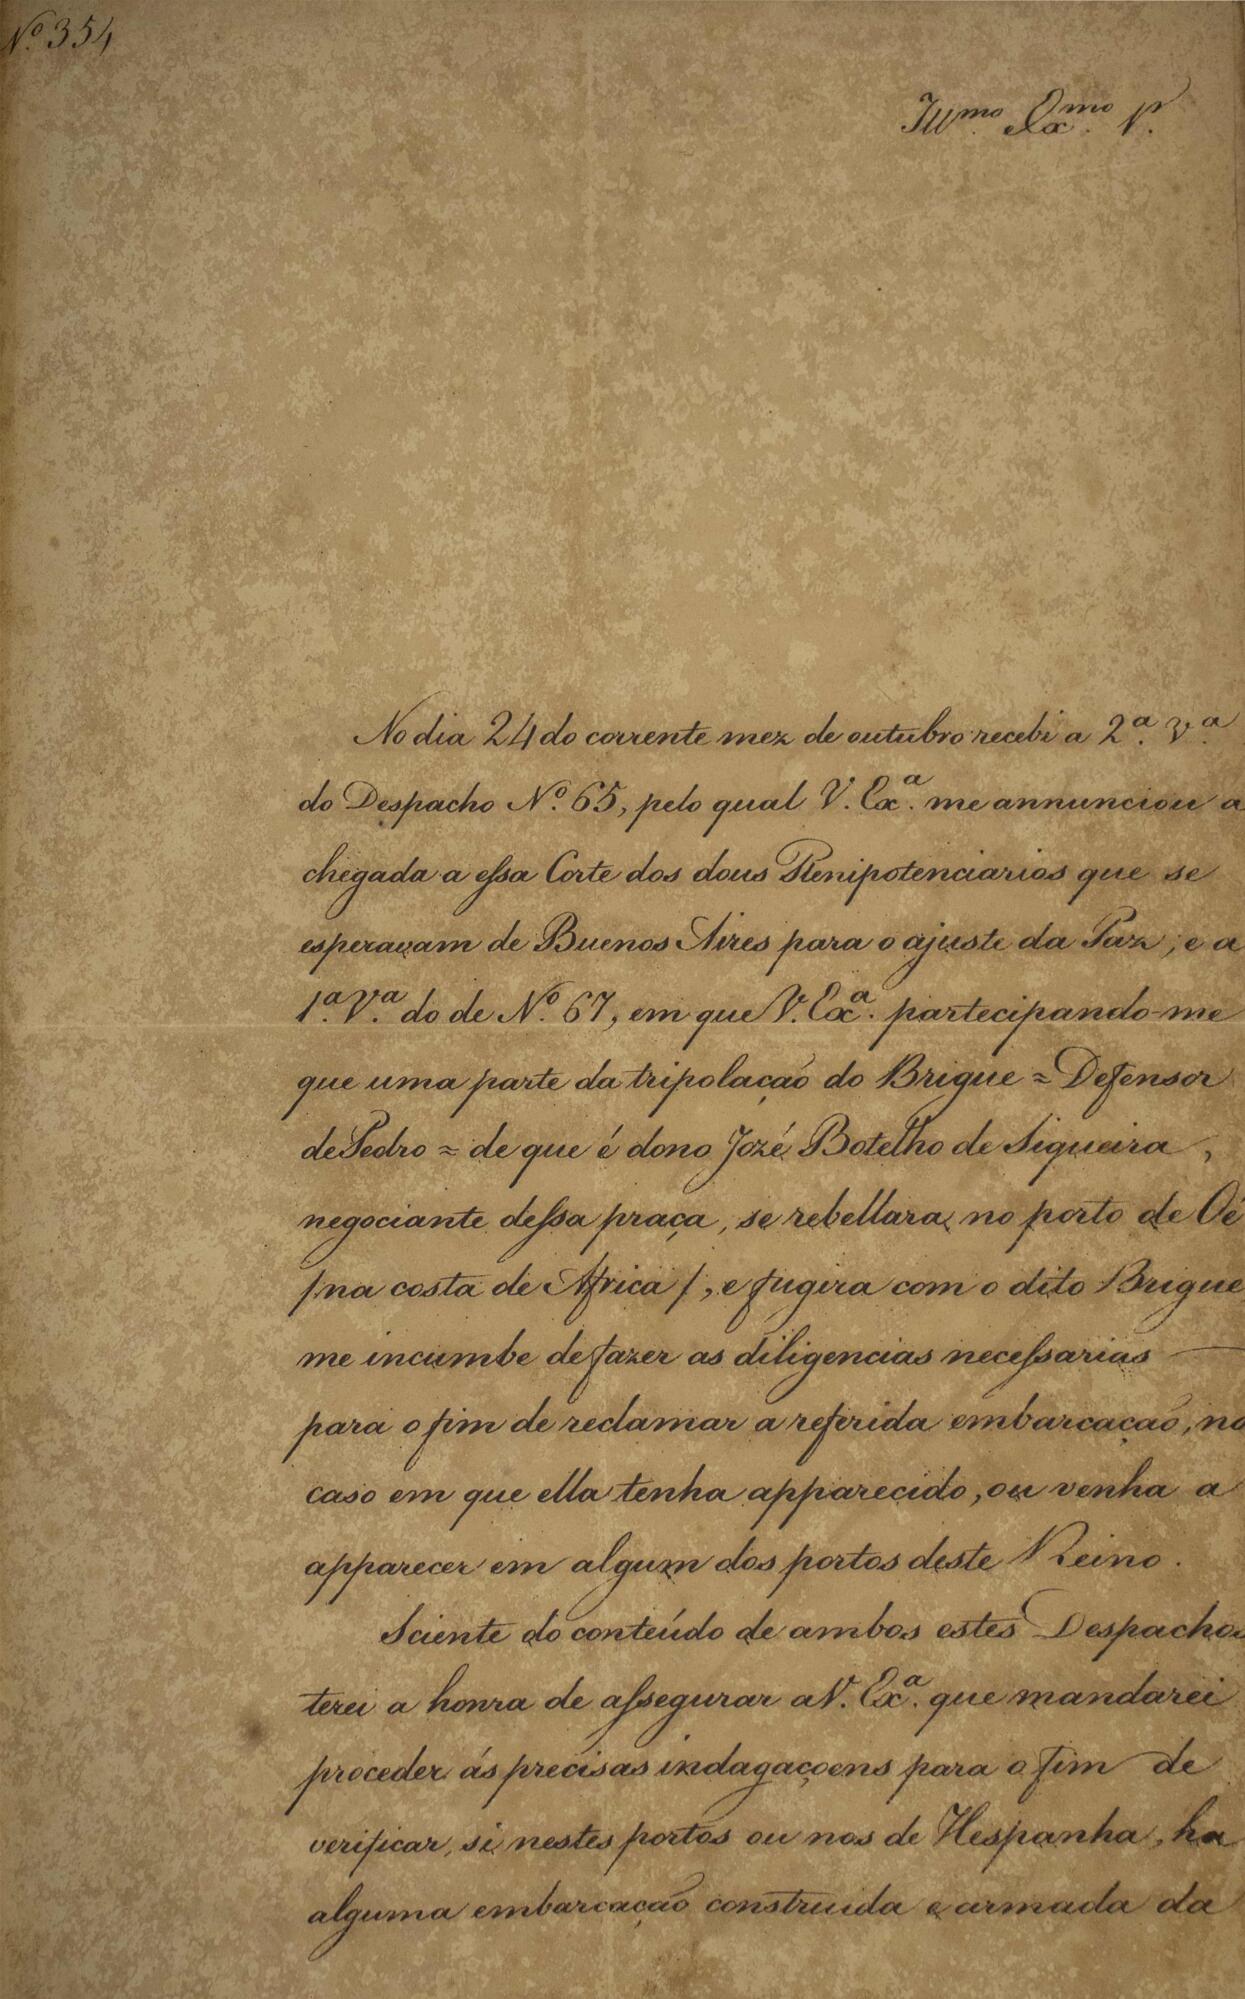 Nº 354
Illmo. Exmo. Sr.
No dia 24 do corrente mez de outubro recebi a 2.ª v.ª
do Despacho Nº. 65, pelo qual V. Ex.ª me annunciou a
chegada a essa Corte dos dous Plenipotenciarios que se
esperavam de Buenos Aires para o ajuste da Paz; e a
1.ª V.ª do de Nº 67, em que V. Ex.ª partecipando-me
que uma parte da tripolação do Brigue = Defensor
de Pedro = de que é dono Jozé Botelho de Siqueira,
negociante dessa praça, se rebellara no porto de Oé
/na costa de Africa/, e fugira com o dito Brigue
me incumbe de fazer as diligencias necessarias
para o fim de reclamar a referida embarcação, no
caso em que ella tenha apparecido, ou venha a
apparecer em algum dos portos deste Reino.
Sciente do conteúdo de ambos estes Despachos
terei a honra de assegurar a V. Ex.ª que mandarei
proceder ás precisas indagaçoens para o fim de
verificar, si nestes portos ou nos de Hespanha, ha
alguma embarcação construida e armada da